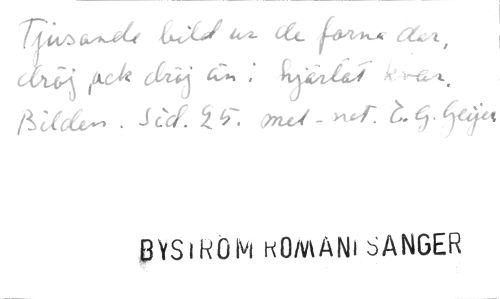 Tjusande bild ur de forna dar,
dröj, ack dröj än i hjärtat kvar.
Bilden. Sid. 25. met-net. E. G. Geijer
BYSTRÖM ROMANI SÅNGER